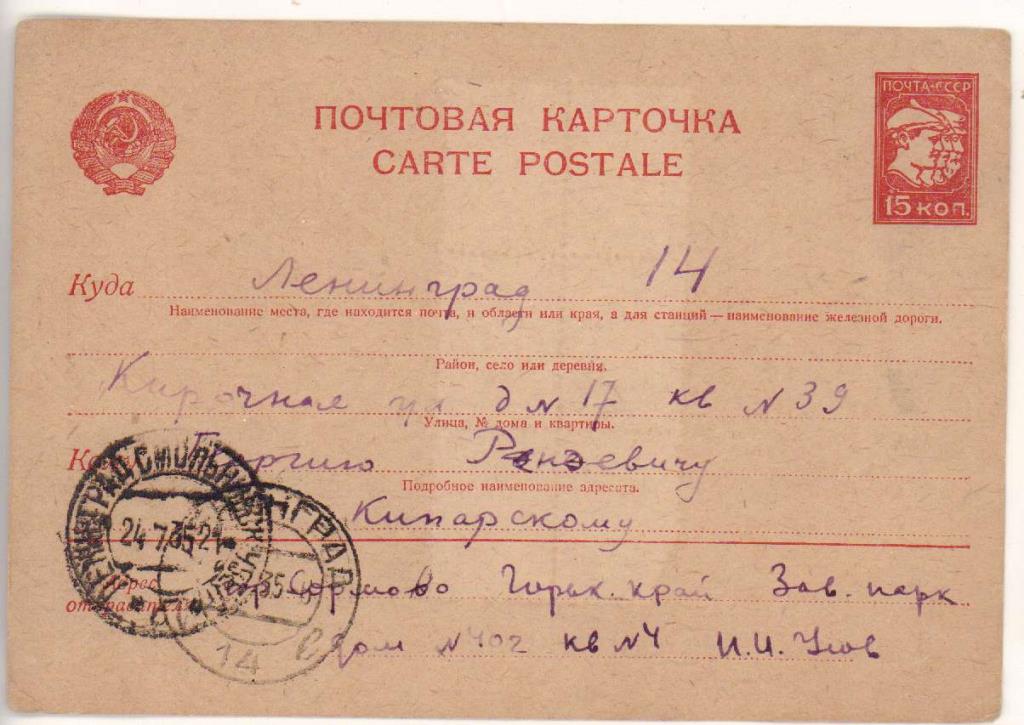 ПОЧТОВАЯ КАРТОЧКА
CARTE POSTALE
ПОЧТА-СССР
15 КОП.
Куда Ленинград 14
Наименование места, где находится почта, и области или края, а для станций — наименование железной дороги.
Район, село или деревня.
Кирочная ул д N 17 кв N 39
Улица, № дома и квартиры.
Кому Георгию
Подробное наименование адресата.
Кипарскому
ЛЕНИНГРАД
24 7 35 21
35
14
Адрес отправителя Сормово Горьк. край Зав. парк
дом N 402 кв N 4 И.И.